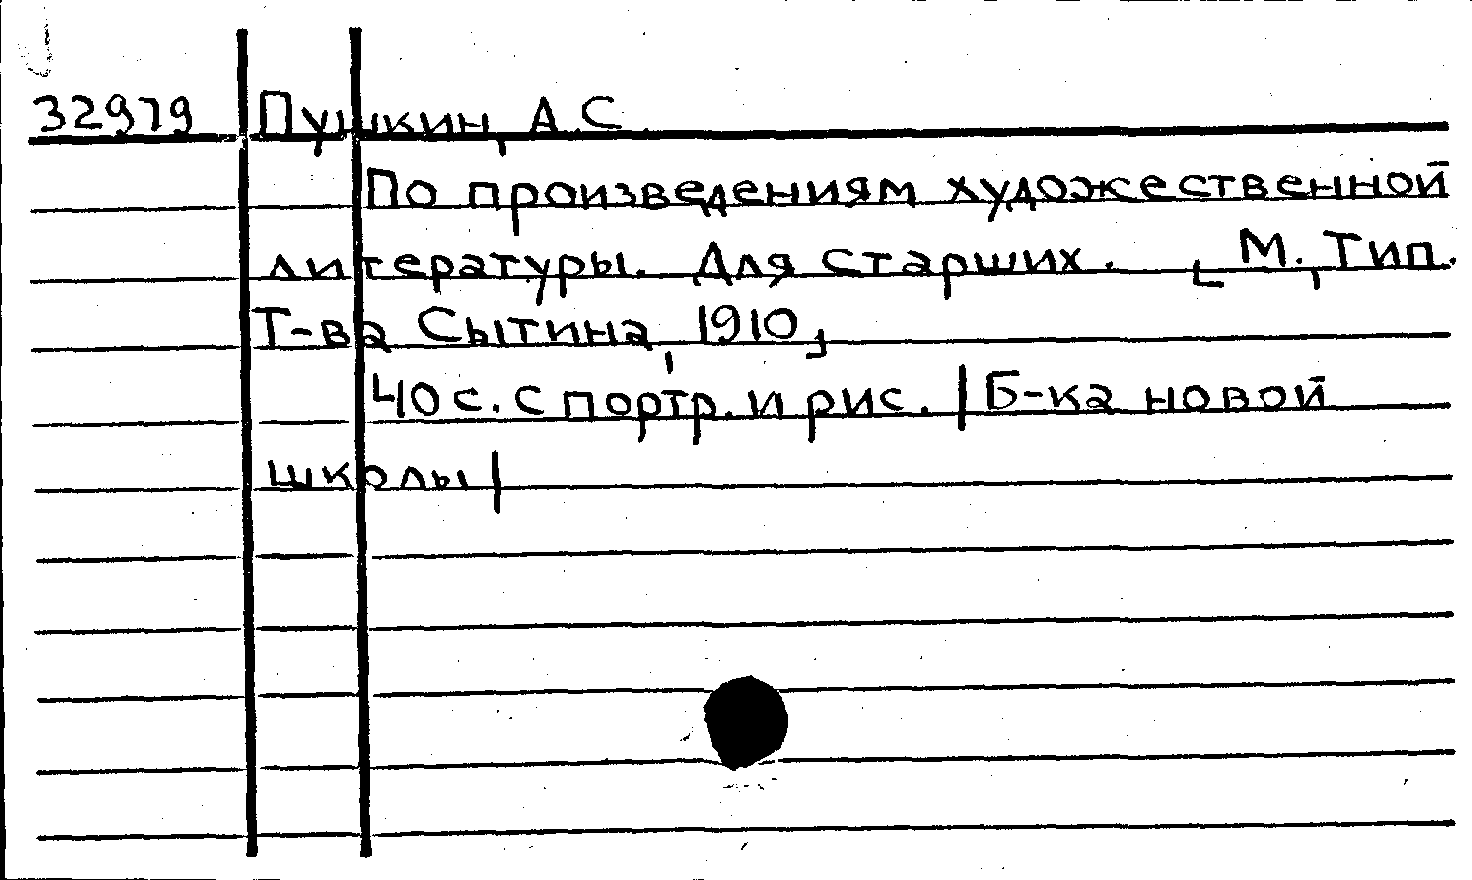 32979 Пушкин, А.С.
По произведениям художественной
литературы. Для старших. [М., Тип.
Т-ва Сытина, 1910]
40 с. с портр. и рис. | Б-ка новой
школы |